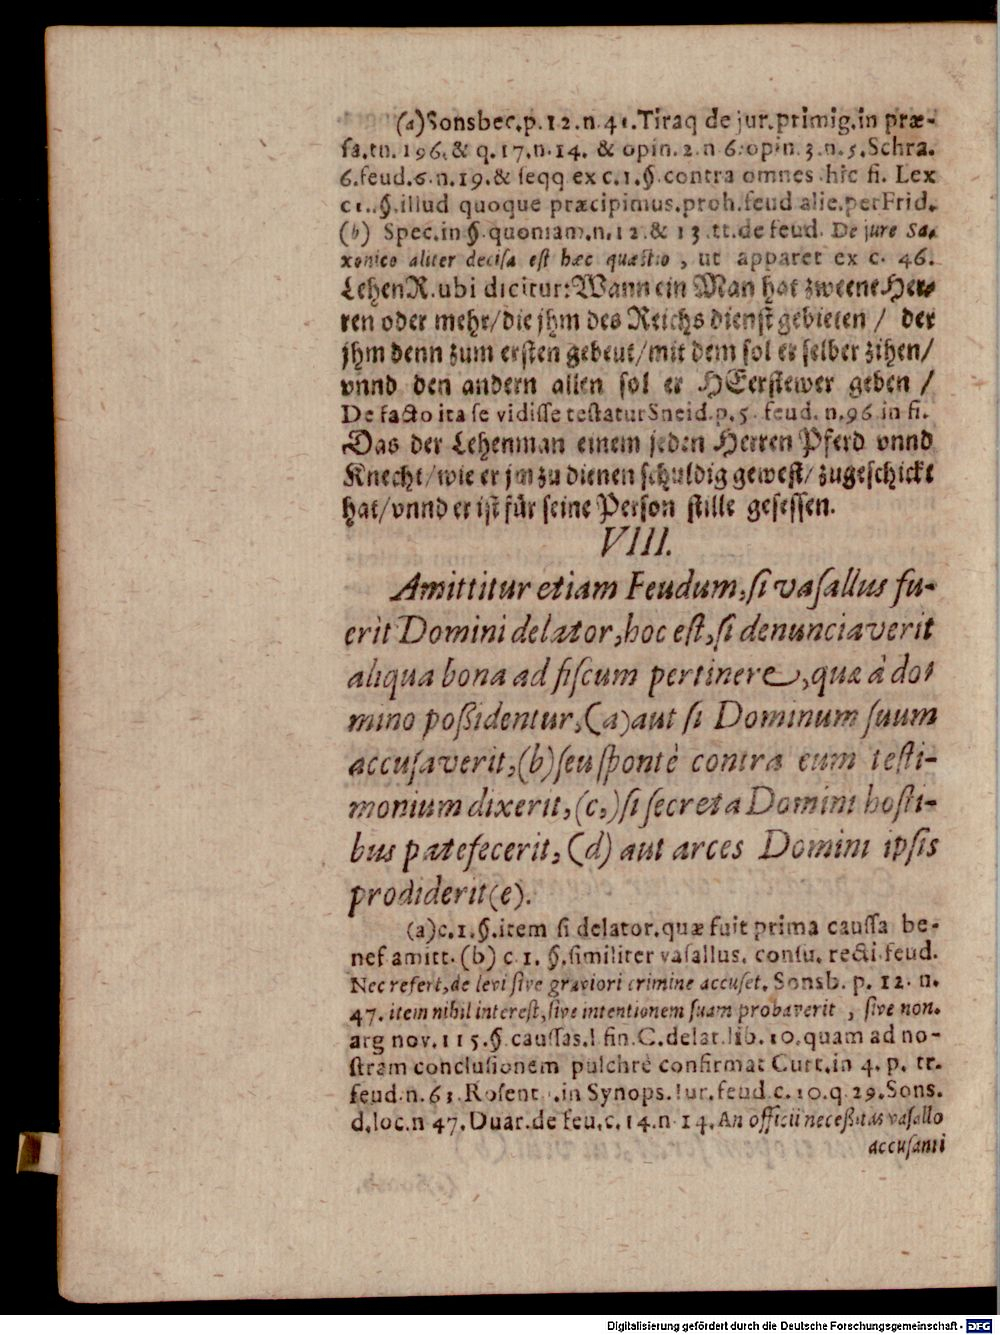 (a) Sonsbec.p.12.n.41.Tiraq de jur.primig.in præ-
fa.tn.196.& q.17.n.14. & opin.2.n 6.opin.3.n.5.Schra.
6.feud.6.n.19.& ſeqq ex c.1.§.contra omnes hîc fi. Lex
c1..§.illud quoque præcipimus.proh.feud alie.perFrid.
(b) Spec.in §.quoniam.n.12.& 13.tt.de feud. De jure Sa-
xonico aliter deciſa eſt hæc quæstio, ut apparet ex c. 46.
LehenR.ubi dicitur: Wann ein Man hat zweene Her-
ren oder mehr/die jhm des Reichs dienſt gebieten / der
jhm denn zum erſten gebeut/mit dem ſol er ſelber zihen/
vnnd den andern allen ſol er HEerſtewer geben /
De facto ita ſe vidiſſe teſtatur Sneid.p.5. feud. n.96 in fi.
Das der Lehenman einem jeden Herren Pferd vnnd
Knecht/wie er jm zu dienen ſchuldig geweſt/zugeſchickt
hat/vnnd er iſt für ſeine Perſon ſtille geſeſſen.
VIII.
Amittitur etiam Feudum,ſi vaſallus fu-
erit Domini delator,hoc eſt,ſi denunciaverit
aliqua bona ad fiſcum pertinere,quæ à do-
mino poßidentur,(a)aut ſi Dominum ſuum
accuſaverit,(b)ſeu ſpontè contra eum teſti-
monium dixerit,(c,)ſi ſecreta Domini hoſti-
bus patefecerit,(d) aut arces Domini ipſis
prodiderit(e).
(a)c.1.§.item ſi delator.quæ fuit prima cauſſa be-
nef amitt.(b) c 1. §.ſimiliter vaſallus. conſu. recti feud.
Nec refert,de levi ſive graviori crimine accuſet. Sonsb. p. 12. n.
47. item nihil intereſt,ſive intentionem ſuam probaverit , ſive non.
arg nov.115.§ cauſſas.l fin.C.delat.lib.10.quam ad no-
ſtram concluſionem pulchrè confirmat Curt.in 4. p. tr.
feud.n.63.Roſent..in Synops.Iur.feud.c.10.q.29.Sons.
d.loc.n 47.Duar.de feu.c.14.n.14.An officii neceßitas vaſallo
accuſanti
Digitalisierung gefördert durch die Deutsche Forschungsgemeinschaft - DFG